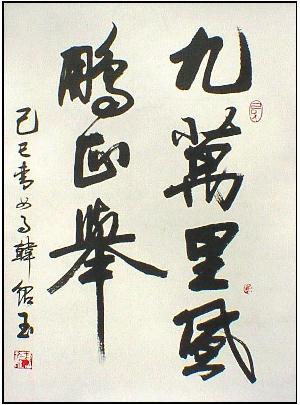 九萬里風
鵬正舉
己巳春如日韓紹玉